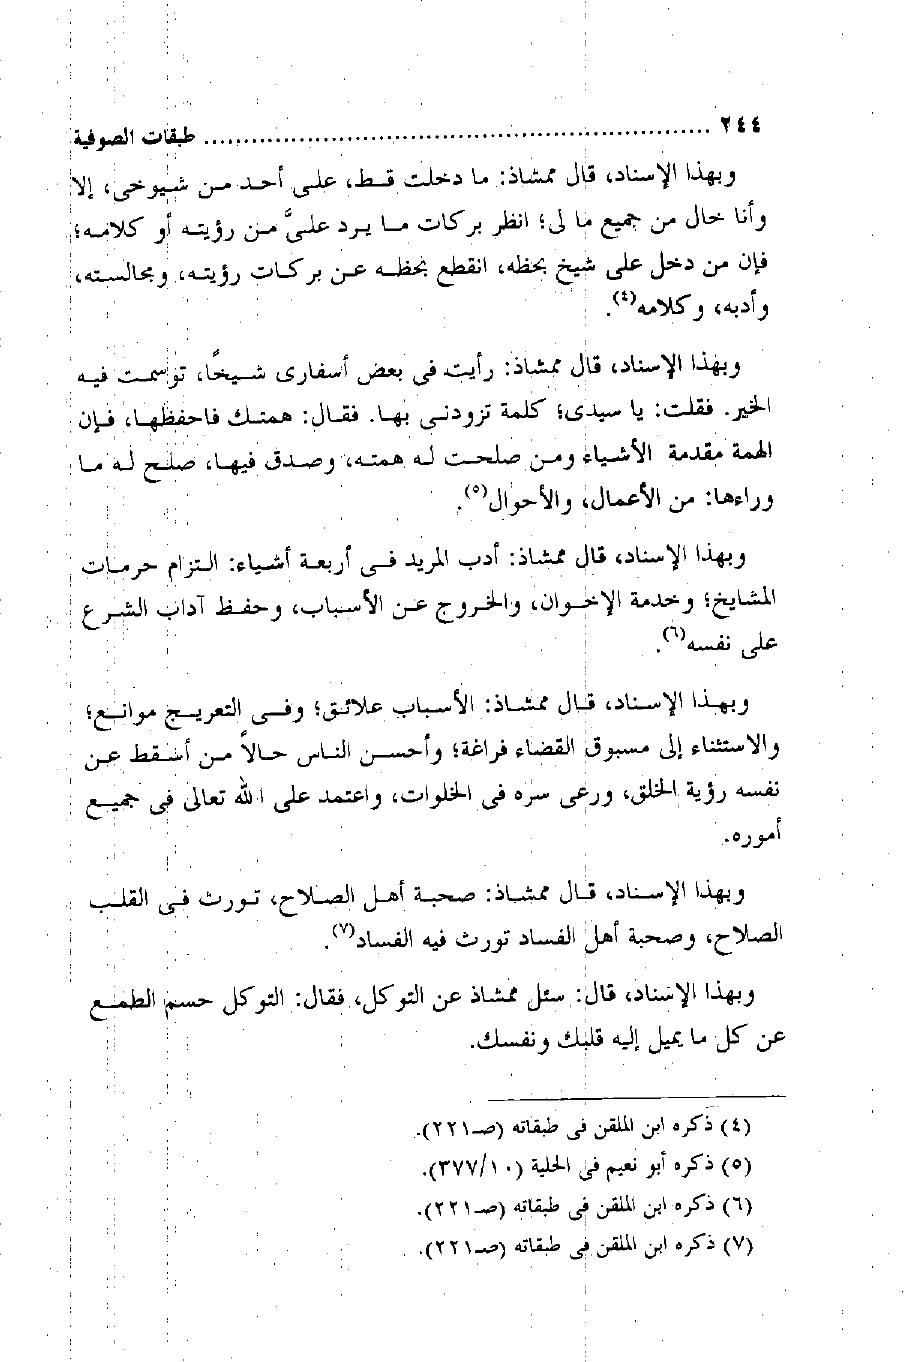 ٢٤٤ ................................................................ طبقات الصوفية
وبهذا الإسناد، قال ممشاذ: ما دخلت قط، على أحد من شيوخى، إلا
وأنا خال من جميع ما لى؛ انظر بركات ما يرد علىَّ من رؤيته أو كلامه؛
فإن من دخل على شيخ بحظه، انقطع بحظه عن بركات رؤيته، ومجالسته،
وأدبه، وكلامه(٤).
وبهذا الإسناد، قال ممشاذ: رأيت فى بعض أسفارى شيخًا، توسمت فيه
الخير. فقلت: يا سيدى؛ كلمة تزودنى بها. فقال: همتك فاحفظها، فإن
الهمة مقدمة الأشياء ومن صلحت له همته، وصدق فيها، صلح له ما
وراءها: من الأعمال، والأحوال(٥).
وبهذا الإسناد، قال ممشاذ: أدب المريد فى أربعة أشياء: التزام حرمات
المشايخ؛ وخدمة الإخوان، والخروج عن الأسباب، وحفظ آداب الشرع
على نفسه(٦).
وبهذا الإسناد، قال ممشاذ: الأسباب علائق؛ وفى التعريج موانع؛
والاستثناء إلى مسبوق القضاء فراغة؛ وأحسن الناس حالاً من أسقط عن
نفسه رؤية الخلق، ورعى سره فى الخلوات، واعتمد على الله تعالى فى جميع
أموره.
وبهذا الإسناد، قال ممشاذ: صحبة أهل الصلاح، تورث فى القلب
الصلاح، وصحبة أهل الفساد تورث فيه الفساد(٧).
وبهذا الإسناد، قال: سئل ممشاذ عن التوكل، فقال: التوكل حسم الطمع
عن كل ما يميل إليه قلبك ونفسك.
(٤) ذكره ابن الملقن فى طبقاته (صـ٢٢١).
(٥) ذكره أبو نعيم فى الحلية (٣٧٧/١٠).
(٦) ذكره ابن الملقن فى طبقاته (صـ٢٢١).
(٧) ذكره ابن الملقن فى طبقاته (صـ٢٢١).